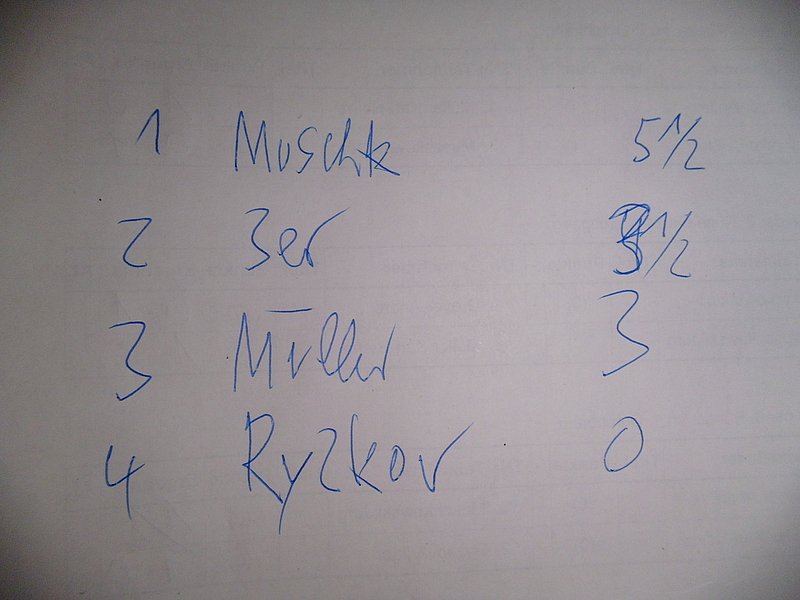 1 Muschk 5 1/2
2 3er 3 1/2
3 Müller 3
4 Ryzkov 0